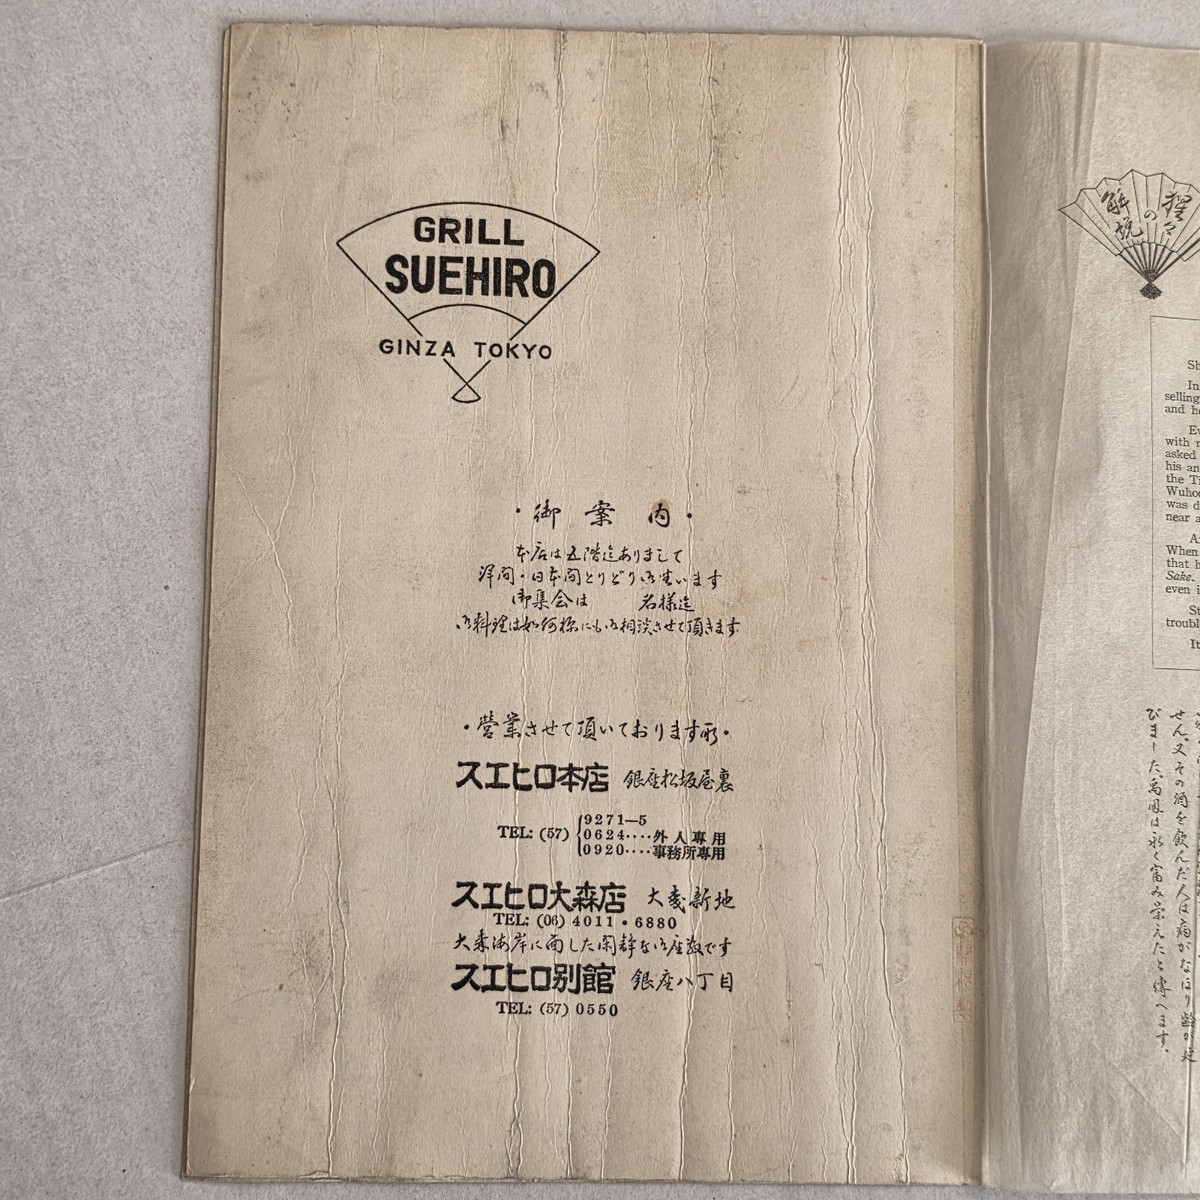 GRILL
SUEHIRO
GINZA TOKYO
・御案内・
本店は五階迄ありまして
洋間・日本間とりどり御座います
御集会は 名様迄
御料理は如何様にも御相談させて頂きます
・営業させて頂いております所・
スエヒロ本店 銀座松坂屋裏
TEL: (57)
9271—5
0624‥‥外人専用
0920‥‥事務所専用
スエヒロ大森店 大森新地
TEL: (06) 4011・6880
大森海岸に面した閑静な御座敷です
スエヒロ別館 銀座八丁目
TEL: (57) 0550
猩々
の
解説
Sh
In
selling
and he
Ev
with r
asked
his an
the Ti
Wuhoo
was d
near a
A
When
that h
Sake.
even i
St
troubl
It
せん、又その酒を飲んだ人は病がなほり齢が延
びました、高風は永く富み栄えたと傳へます。